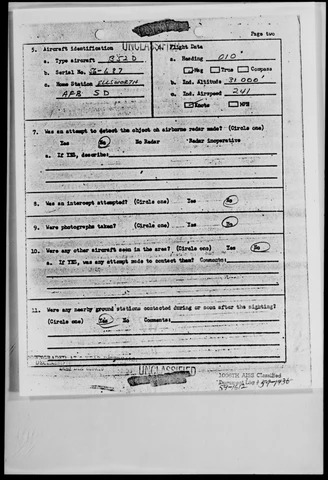 Page two
UNCLASSIFIED
5. Aircraft identification
a. Type aircraft B52D
b. Serial No. 56-687
c. Home Station ELLSWORTH
AFB SD
Flight Data
a. Heading 010°
Mag True Compass
b. Ind. Altitude 31 000'
c. Ind. Airspeed 241
Knots MPH
7. Was an attempt to detect the object on airborne radar made? (Circle one)
Yes No No Radar Radar inoperative
a. If YES, describe:
8. Was an intercept attempted? (Circle one) Yes No
9. Were photographs taken? (Circle one) Yes No
10. Were any other aircraft seen in the area? (Circle one) Yes No
a. If YES, was any attempt made to contact them? Comments:
11. Were any nearby ground stations contacted during or soon after the sighting?
(Circle one) Yes No Comments:
UNCLASSIFIED
Classified